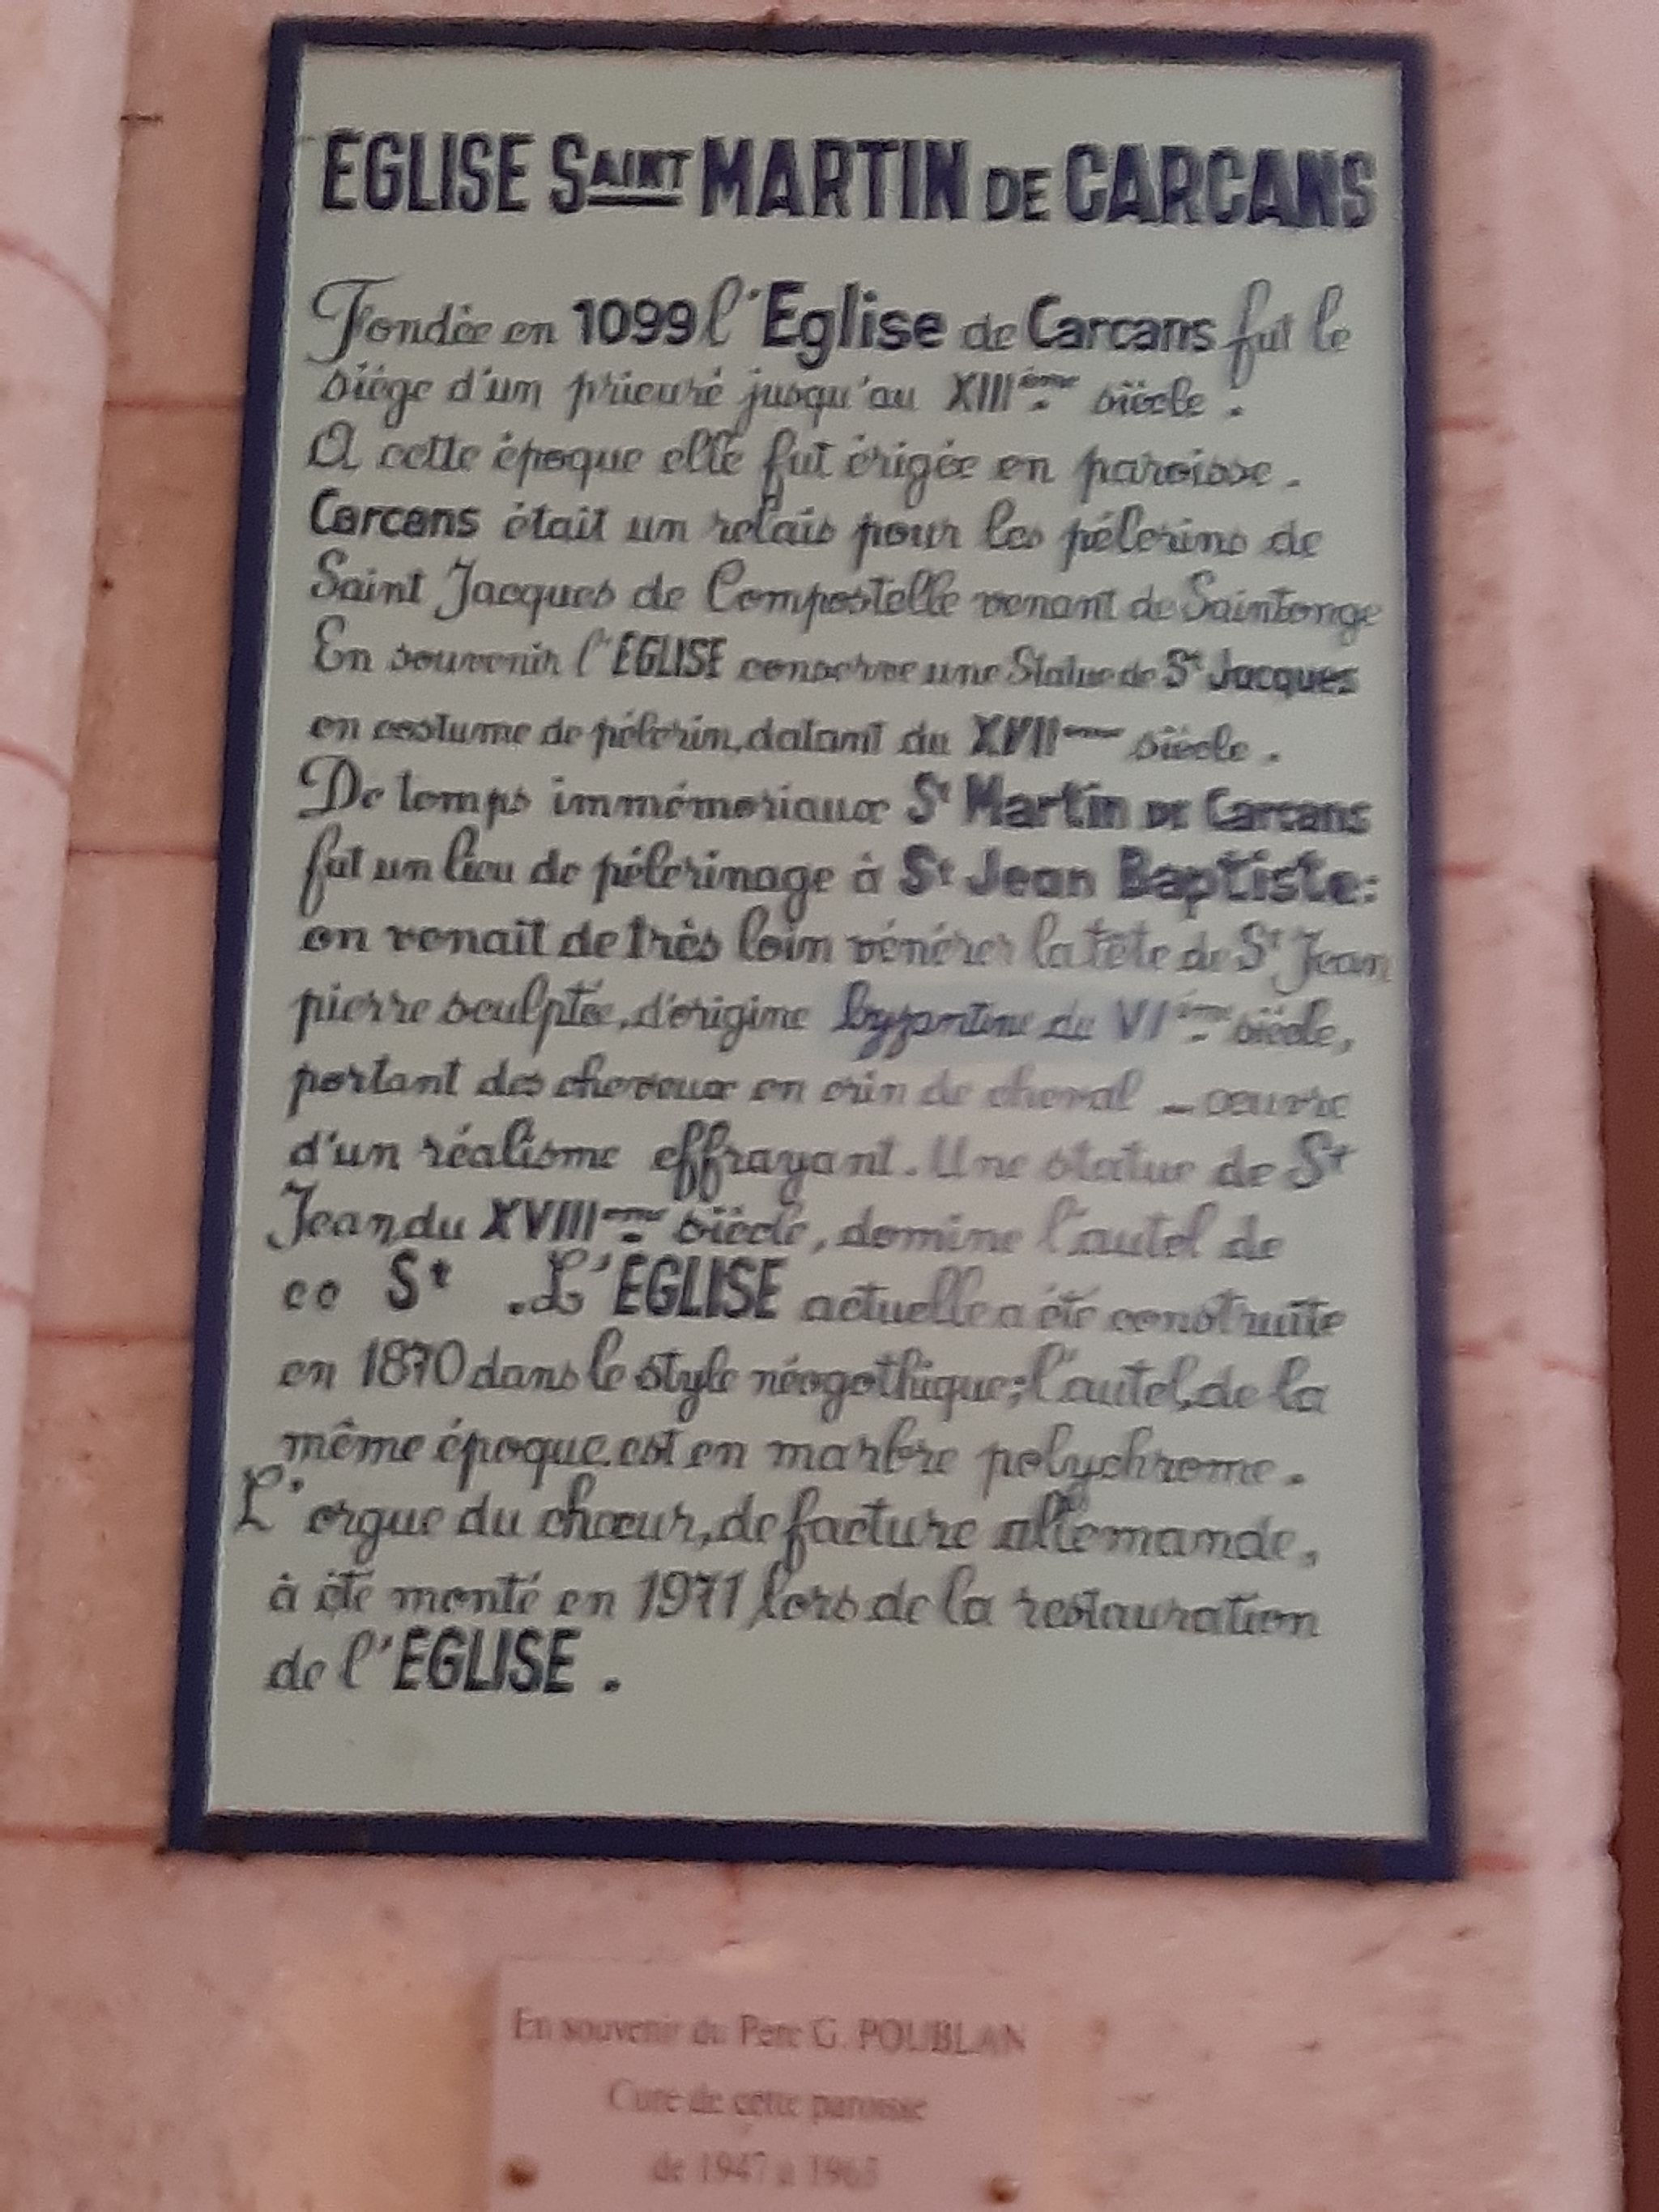 EGLISE SAINT MARTIN DE CARCANS
Fondée en 1099 l'Eglise de Carcans fut le
siége d'un prieuré jusqu'au XIIIème siècle.
A cette époque elle fut érigée en paroisse.
Carcans était un relais pour les pélerins de
Saint Jacques de Compostelle venant de Saintonge
En souvenir l'EGLISE conserve une Statue de St Jacques
en costume de pélerin, datant du XVIIème siècle.
De temps immémoriaux St Martin DE Carcans
fut un lieu de pélerinage à St Jean Baptiste:
on venait de très loin vénérer la tête de St Jean
pierre sculptée, d'origine byzantine du VIème siècle,
portant des cheveux en crin de cheval _ oeuvre
d'un réalisme effrayant. Une statue de St
Jean du XVIIIème siècle, domine l'autel de
ce St . L'EGLISE actuelle a été construite
en 1870 dans le style néogothique; l'autel, de la
même époque est en marbre polychrome.
L'orgue du chœur, de facture allemande,
à été monté en 1971 lors de la restauration
de l'EGLISE.
En souvenir du Père G. POUBLAN
Curé de cette paroisse
de 1947 à